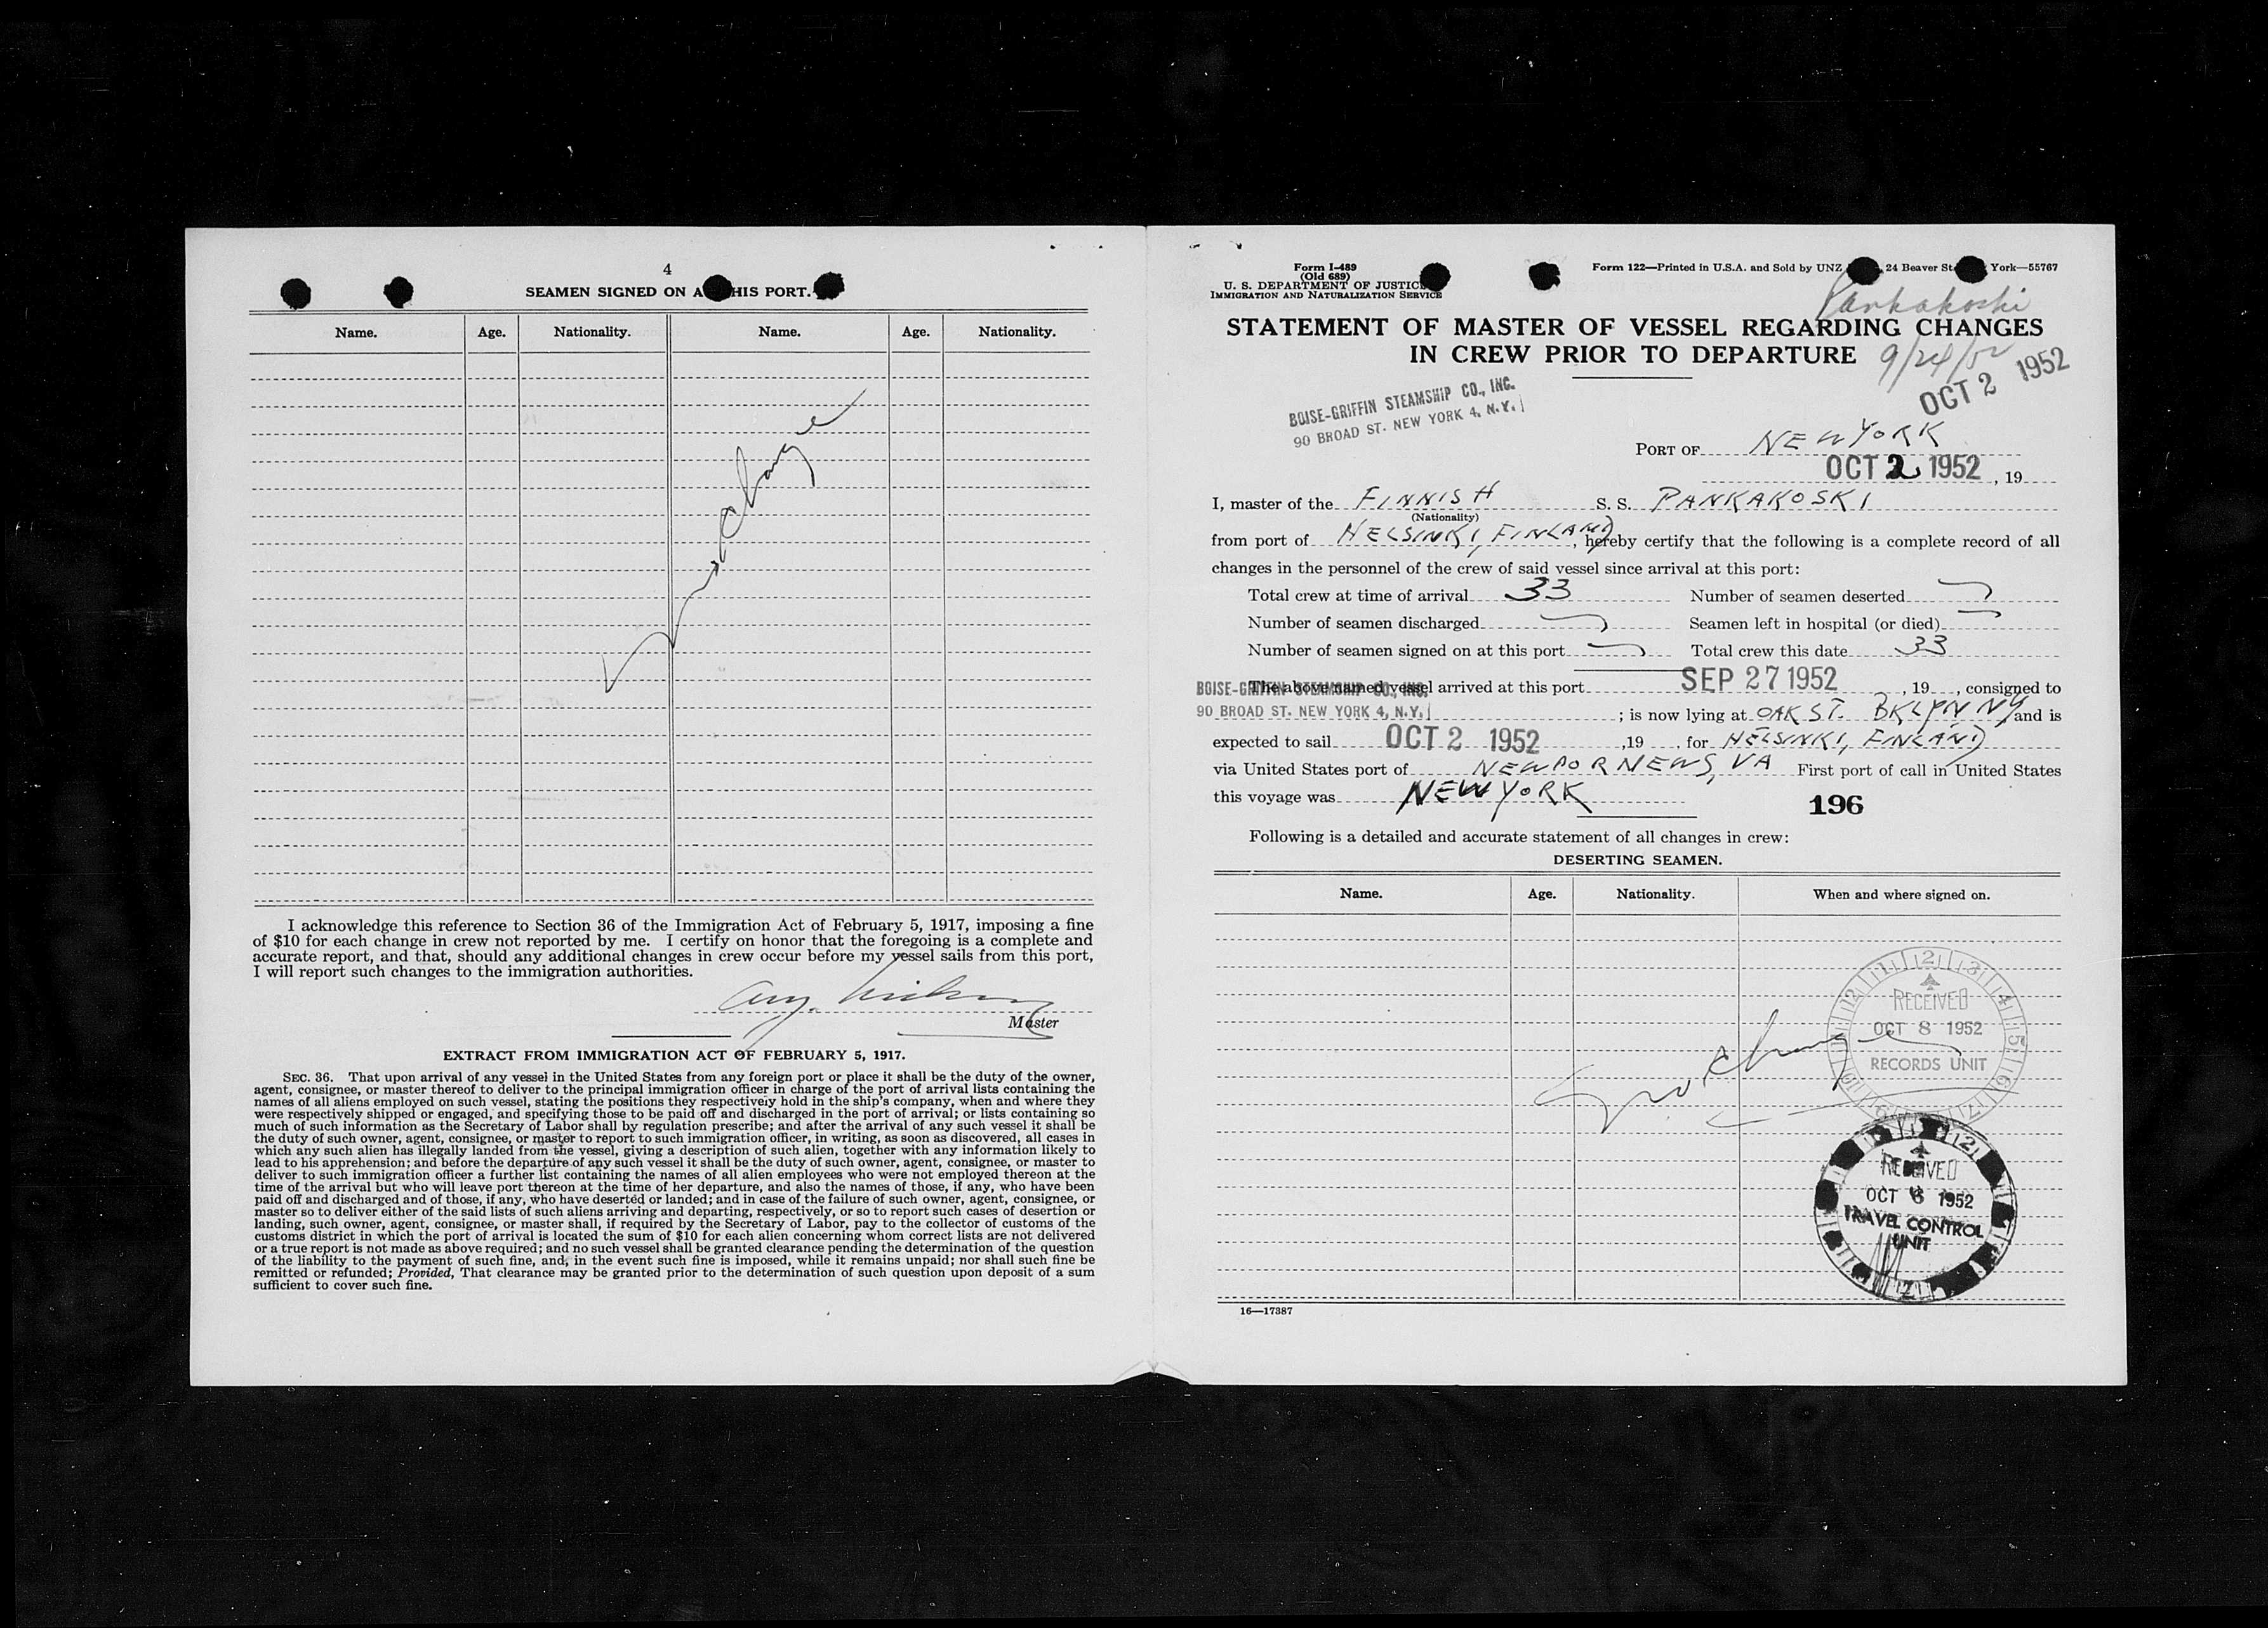 4
SEAMEN SIGNED ON A HIS PORT.
Name. Age. Nationality. Name. Age. Nationality.
no change
I acknowledge this reference to Section 36 of the Immigration Act of February 5, 1917, imposing a fine
of $10 for each change in crew not reported by me. I certify on honor that the foregoing is a complete and
accurate report, and that, should any additional changes in crew occur before my vessel sails from this port,
I will report such changes to the immigration authorities.
Master
EXTRACT FROM IMMIGRATION ACT OF FEBRUARY 5, 1917.
SEC. 36. That upon arrival of any vessel in the United States from any foreign port or place it shall be the duty of the owner,
agent, consignee, or master thereof to deliver to the principal immigration officer in charge of the port of arrival lists containing the
names of all aliens employed on such vessel, stating the positions they respectively hold in the ship's company, when and where they
were respectively shipped or engaged, and specifying those to be paid off and discharged in the port of arrival; or lists containing so
much of such information as the Secretary of Labor shall by regulation prescribe; and after the arrival of any such vessel it shall be
the duty of such owner, agent, consignee, or master to report to such immigration officer, in writing, as soon as discovered, all cases in
which any such alien has illegally landed from the vessel, giving a description of such alien, together with any information likely to
lead to his apprehension; and before the departure of any such vessel it shall be the duty of such owner, agent, consignee, or master to
deliver to such immigration officer a further list containing the names of all alien employees who were not employed thereon at the
time of the arrival but who will leave port thereon at the time of her departure, and also the names of those, if any, who have been
paid off and discharged and of those, if any, who have deserted or landed; and in case of the failure of such owner, agent, consignee, or
master so to deliver either of the said lists of such aliens arriving and departing, respectively, or so to report such cases of desertion or
landing, such owner, agent, consignee, or master shall, if required by the Secretary of Labor, pay to the collector of customs of the
customs district in which the port of arrival is located the sum of $10 for each alien concerning whom correct lists are not delivered
or a true report is not made as above required; and no such vessel shall be granted clearance pending the determination of the question
of the liability to the payment of such fine, and, in the event such fine is imposed, while it remains unpaid; nor shall such fine be
remitted or refunded; Provided, That clearance may be granted prior to the determination of such question upon deposit of a sum
sufficient to cover such fine.
Form I-489
(Old 689)
U. S. DEPARTMENT OF JUSTICE
IMMIGRATION AND NATURALIZATION SERVICE
Form 122—Printed in U.S.A. and Sold by UNZ 24 Beaver St York—55767
Pankakoski
STATEMENT OF MASTER OF VESSEL REGARDING CHANGES
IN CREW PRIOR TO DEPARTURE
9/24/52
OCT 2 1952
BOISE-GRIFFIN STEAMSHIP CO., INC.
90 BROAD ST. NEW YORK 4, N.Y.
PORT OF NEW YORK
OCT 2 1952, 19
I, master of the FINNISH S. S. PANKAKOSKI
(Nationality)
from port of HELSINKI, FINLAND, hereby certify that the following is a complete record of all
changes in the personnel of the crew of said vessel since arrival at this port:
Total crew at time of arrival 33 Number of seamen deserted
Number of seamen discharged Seamen left in hospital (or died)
Number of seamen signed on at this port Total crew this date 33
The above named vessel arrived at this port SEP 27 1952, 19, consigned to
BOISE-GRIFFIN STEAMSHIP CO., INC.
90 BROAD ST. NEW YORK 4, N.Y. ; is now lying at OAK ST. BKLYN NY and is
expected to sail OCT 2 1952 ,19 , for HELSINKI, FINLAND
via United States port of NEWPOR NEWS, VA First port of call in United States
this voyage was NEW YORK
196
Following is a detailed and accurate statement of all changes in crew:
DESERTING SEAMEN.
Name. Age. Nationality. When and where signed on.
no change
RECEIVED
OCT 8 1952
RECORDS UNIT
RECEIVED
OCT 6 1952
TRAVEL CONTROL
UNIT
16—17387